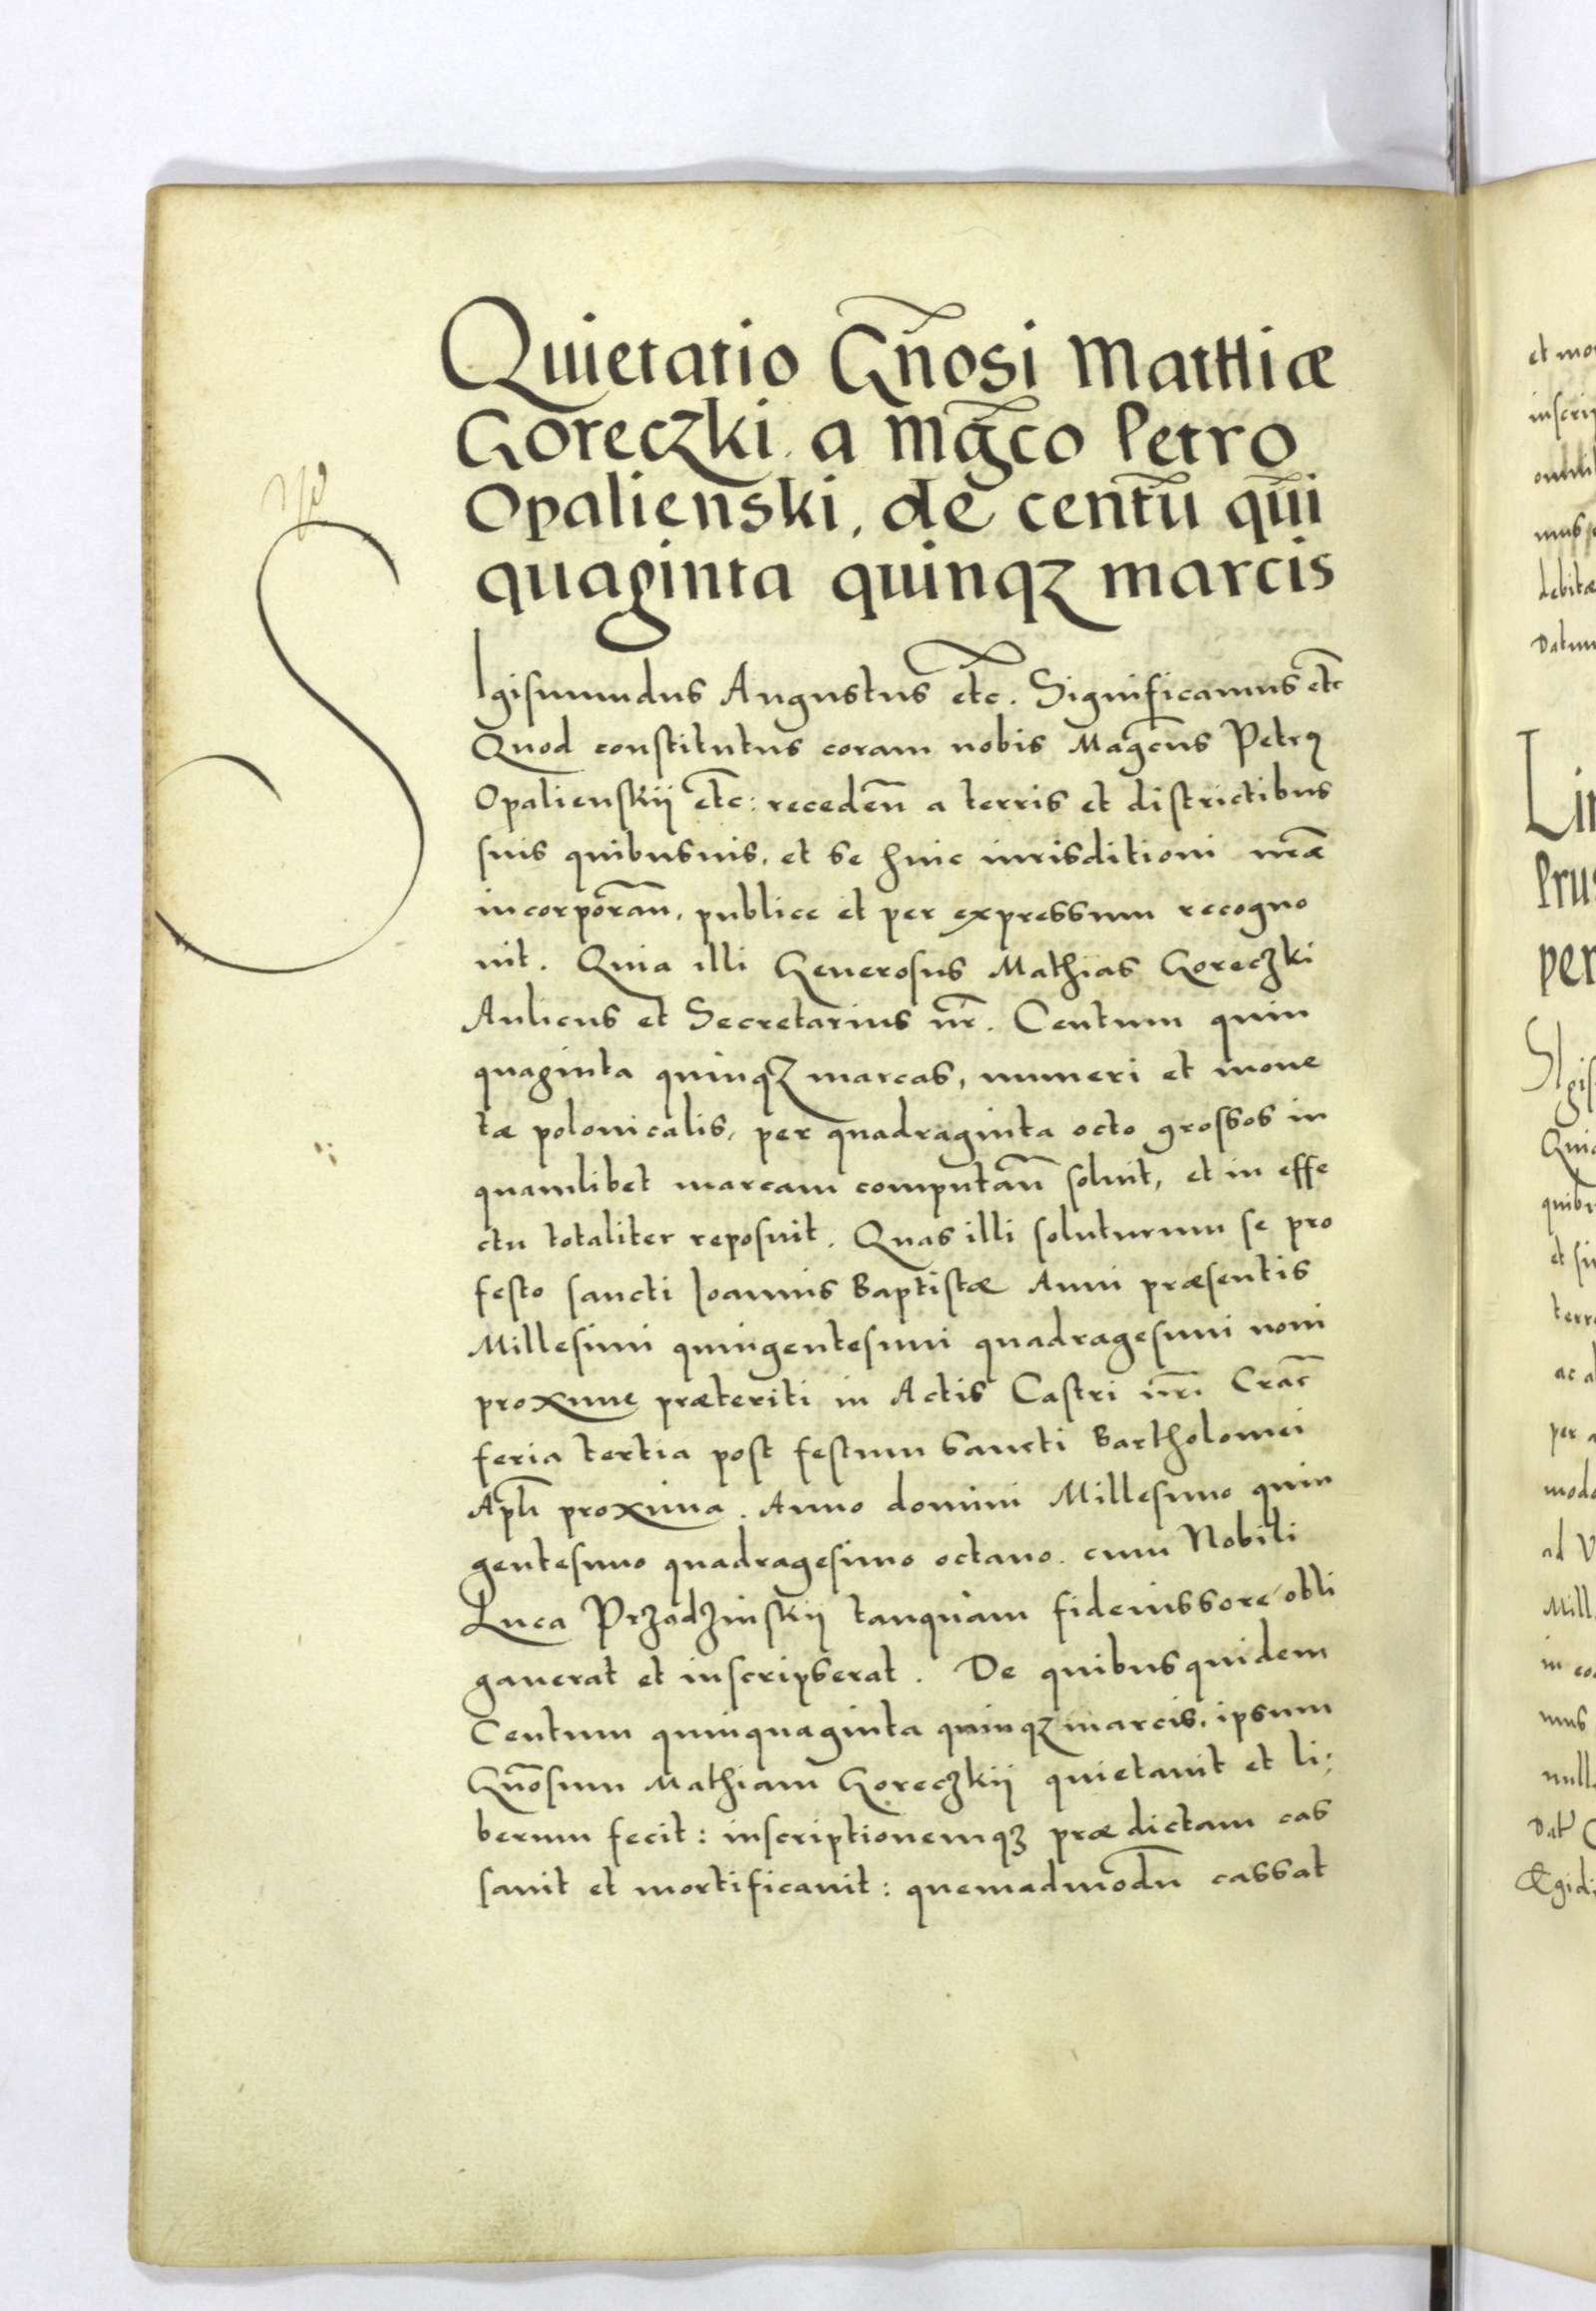 Quietatio Gnosi Matthiæ
Goreczki a Mgco Petro
Opalienski, de centū qui
quaginta quinqꝫ marcis
SIgismundus Augustus etc. Significamus etc
Quod constitutus coram nobis Magcus Petrꝰ
Opalienskij etc: recedeñ a terris et districtibus
suis quibusuis, et se huic iurisditioni nræ
incorporañ, publice et per expressum recogno
uit. Quia illi Generosus Mathias Goreczki
Aulicus et Secretarius nr̄. Centum quin
quaginta quinqꝫ marcas, numeri et mone
tæ polonicalis, per quadraginta octo grossos in
quamlibet marcam computañ soluit, et in effe
ctu totaliter reposuit. Quas illi soluturum se pro
festo sancti Ioannis Baptistæ Anni præsentis
Millesimi quingentesimi quadragesimi noni
proxime præteriti in Actis Castri nr̄i Crac̄
feria tertia post festum sancti Bartholomei
Apli proxima. Anno domini Millesimo quin
gentesimo quadragesimo octauo. cum Nobili
Luca Przadzinskij tanquam fideiussore obli
gauerat et inscripserat. De quibus quidem
Centum quinquaginta quinqꝫ marcis, ipsum
Gnōsum Mathiam Goreczkij quietauit et li:
berum fecit: inscriptionemqꝫ præ dictam cas
sauit et mortificauit: quemadmodū cassat
et mo
inscrip
mus
debitæ
Datum
Lin
Prus
per
SIgis
Quia
et
terr
ac a
per a
modo
ad V
Mill
in co
mus
null
Dat C
Ægidi